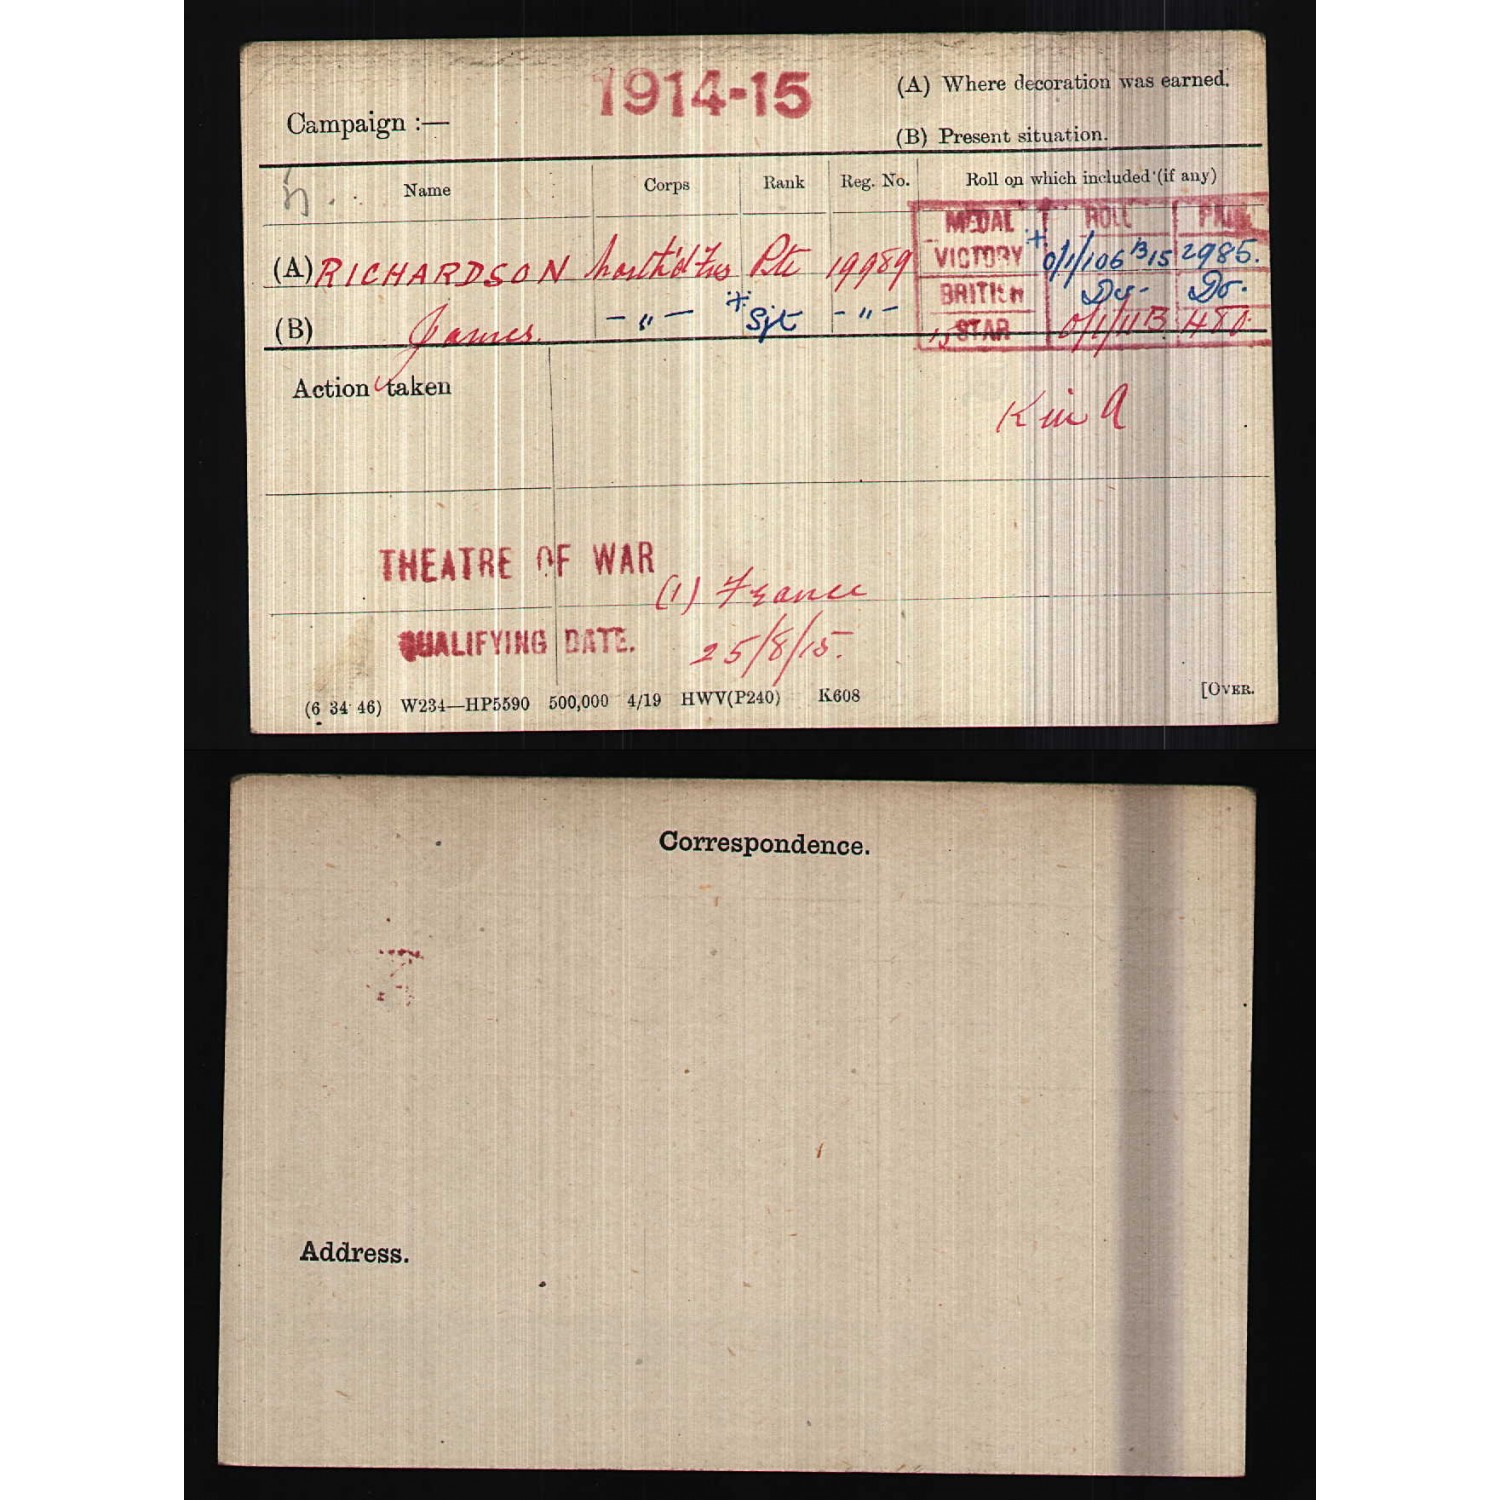 Campaign :— 1914-15 (A) Where decoration was earned.
(B) Present situation.
Name Corps Rank Reg. No. Roll on which included (if any)
MEDAL ROLL PAGE
(A) RICHARDSON North'd Fus Pte 19989 VICTORY + O/1/106 B15 2985.
BRITISH Do. Do.
(B) James. -"- + Sjt -"- 15 STAR O/1/11B 480.
Action taken
K in A
THEATRE OF WAR (1) France
QUALIFYING DATE. 25/8/15.
(6 34 46) W234—HP5590 500,000 4/19 HWV(P240) K608 [OVER.
Correspondence.
Address.